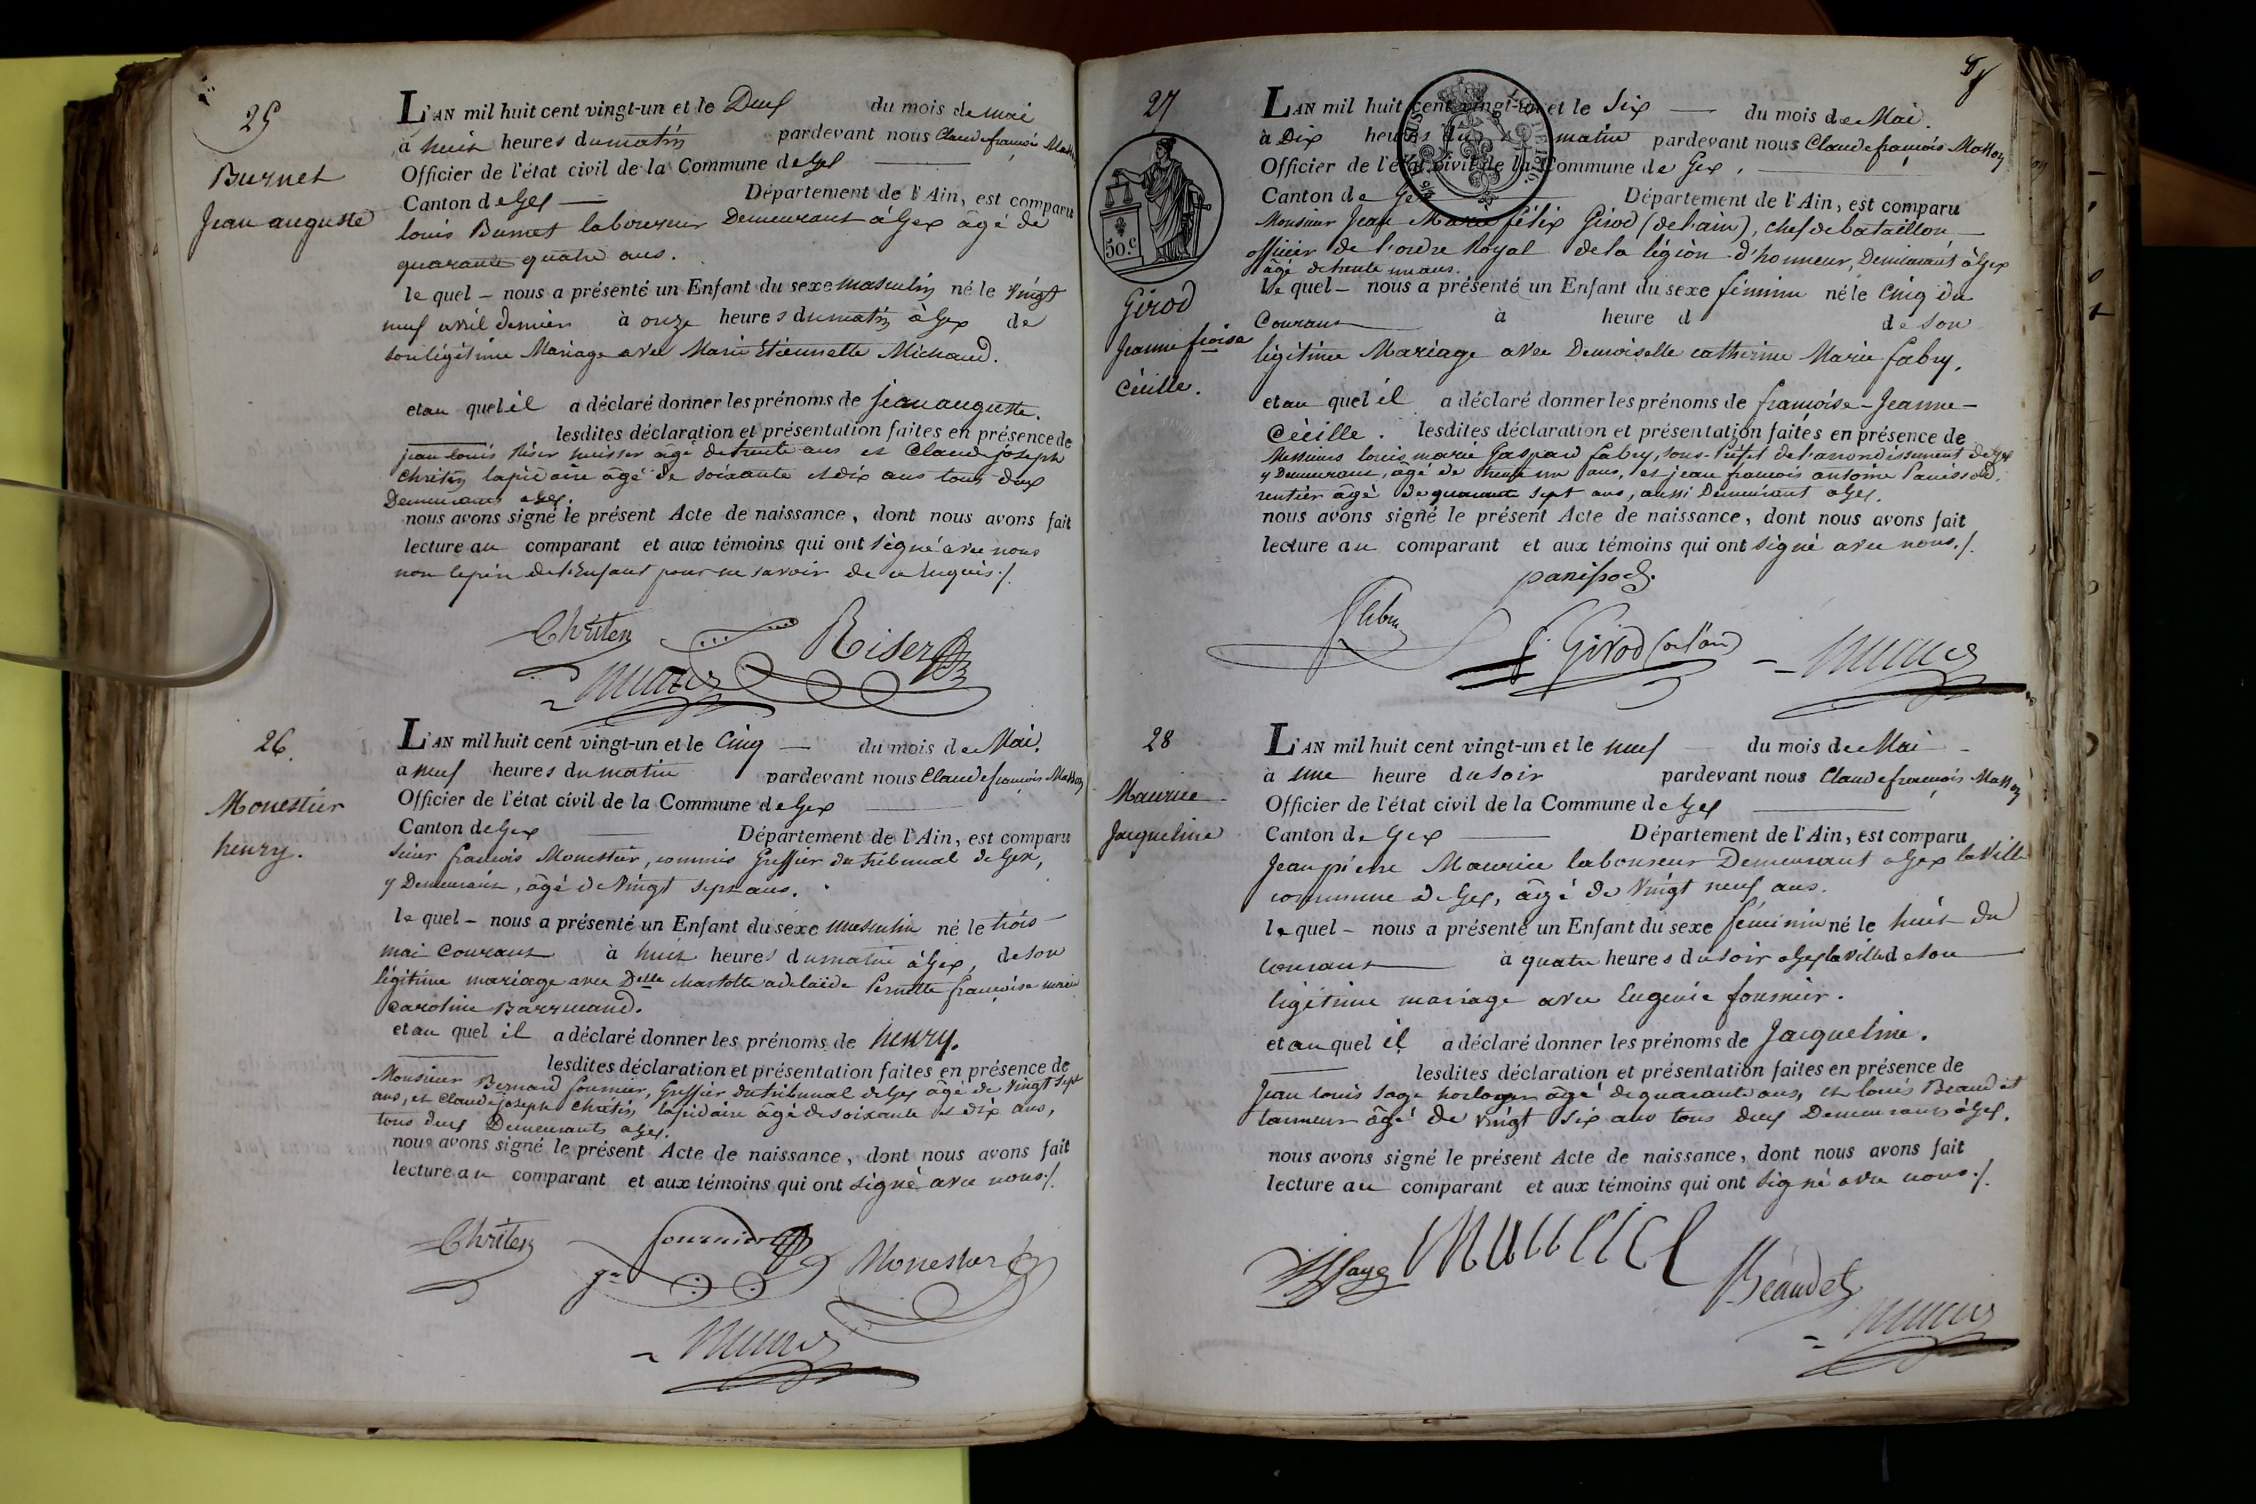 25
Burnet
Jean auguste
L'AN mil huit cent vingt-un et le Deux du mois de mai
à huit heures du matin pardevant nous Claude françois Masson
Officier de l'état civil de la Commune de Gex
Canton de Gex Département de l'Ain, est comparu
louis Burnet laboureur Demeurant à Gex âgé de
quarante quatre ans.
le quel – nous a présenté un Enfant du sexe masculin né le vingt
neuf avril dernier à onze heures du matin à Gex de
son légitime Mariage avec Marie Etiennette Michaud.
et au quel il a déclaré donner les prénoms de jean auguste.
lesdites déclaration et présentation faites en présence de
jean louis Riser huissier âgé de trente ans et Claude joseph
Chriten lapidaire âgé de soixante et dix ans tous deux
Demeurants a Gex.
nous avons signé le présent Acte de naissance, dont nous avons fait
lecture au comparant et aux témoins qui ont signé avec nous
non le père de l'Enfant pour ne savoir de ce enquis ./.
Chriten Riser
26.
Monestier
henry.
L'AN mil huit cent vingt-un et le Cinq — du mois de Mai.
a neuf heures du matin pardevant nous Claude françois Masson
Officier de l'état civil de la Commune de Gex
Canton de Gex Département de l'Ain, est comparu
Sieur françois Monestier, commis Greffier du tribunal de Gex,
y Demeurant, âgé de vingt sept ans.
le quel – nous a présenté un Enfant du sexe masculin né le trois
mai Courant à huit heures du matin à Gex, de son
légitime mariage avec Delle charlotte adelaïde Pernette françoise marie
Caroline Barruand.
et au quel il a déclaré donner les prénoms de henry.
lesdites déclaration et présentation faites en présence de
Monsieur Bernard fournier, Greffier du tribunal de Gex âgé de vingt sept
ans, et Claude joseph Chriten lapidaire âgé de soixante et dix ans,
tous deux Demeurants a Gex.
nous avons signé le présent Acte de naissance, dont nous avons fait
lecture au comparant et aux témoins qui ont signé avec nous ./.
Chriten fournier Monestier
27
50.c
Girod
Jeanne fçoise
Cécille.
L'AN mil huit cent vingt-un et le Six — du mois de Mai.
à Dix heures du matin pardevant nous Claude françois Masson
Officier de l'état civil de la Commune de Gex.
Canton de Gex Département de l'Ain, est comparu
Monsieur Jean Marie félix Girod (de l'ain), chef de bataillon
officier de l'ordre Royal de la légion d'honneur, Demeurant à Gex
âgé de trente un ans.
le quel – nous a présenté un Enfant du sexe féminin né le Cinq du
Courant à heure d de son
légitime Mariage avec Demoiselle catherine Marie fabry.
et au quel il a déclaré donner les prénoms de françoise – Jeanne –
Cécille. lesdites déclaration et présentation faites en présence de
Messieurs louis marie Gaspard fabry, sous-Préfet de l'arrondissement de Gex
y Demeurant, âgé de trente un ans, et jean françois antoine Panissod,
rentier âgé de quarante sept ans, aussi Demeurant a Gex.
nous avons signé le présent Acte de naissance, dont nous avons fait
lecture au comparant et aux témoins qui ont signé avec nous ./.
panissod.
fabry f. Girod (de l'ain)
28
Maurice
Jacqueline
L'AN mil huit cent vingt-un et le neuf du mois de Mai
à une heure du soir pardevant nous Claude françois Masson
Officier de l'état civil de la Commune de Gex
Canton de Gex Département de l'Ain, est comparu
Jean pierre Maurice laboureur Demeurant a Gex la ville
commune de Gex, âgé de vingt neuf ans.
le quel – nous a présenté un Enfant du sexe féminin né le huit du
courant à quatre heures du soir a Gex la ville de son
légitime mariage avec Eugenie fournier.
et au quel il a déclaré donner les prénoms de Jacqueline.
lesdites déclaration et présentation faites en présence de
Jean louis Sage horloger âgé de quarante ans, et louis Beaudet
tanneur âgé de vingt six ans tous deux Demeurants à Gex.
nous avons signé le présent Acte de naissance, dont nous avons fait
lecture au comparant et aux témoins qui ont signé avec nous ./.
Sage Maurice Beaudet